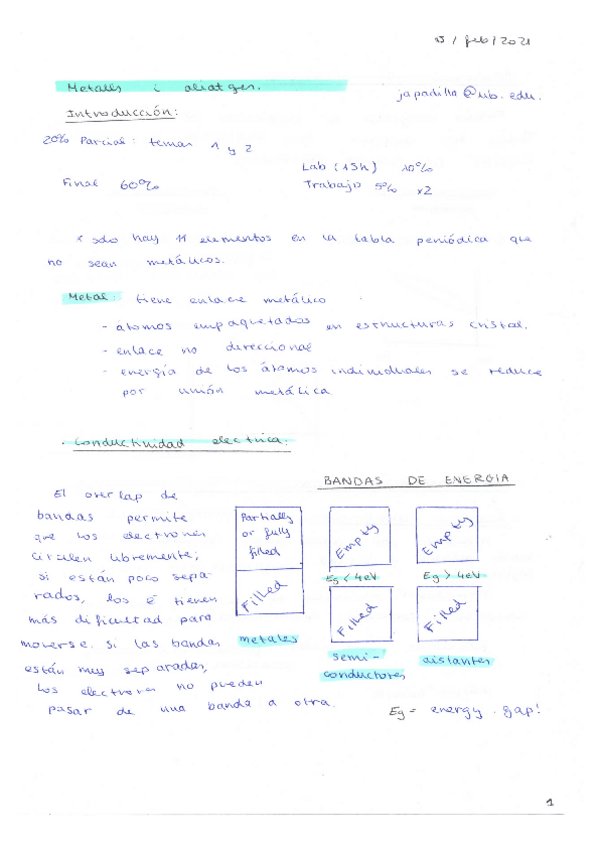 15 / feb / 2021
Metalls i aliatges.
japadilla@ub.edu.
Introducción:
20% Parcial: temas 1 y 2
Lab (15h) 10%
Final 60%
Trabajo 5% x2
* solo hay 11 elementos en la tabla periódica que
no sean metálicos.
Metal: tiene enlace metálico
- atomos empaquetados en estructuras cristal.
- enlace no direccional
- energía de los átomos individuales se reduce
por unión metálica
· Conductividad electrica:
BANDAS DE ENERGIA
El overlap de
bandas permite
que los electrones
circulen libremente;
si están poco sepa-
rados, los é tienen
más dificultad para
moverse. si las bandas
están muy separadas,
los electrones no pueden
pasar de una banda a otra.
Partially
or fully
filled
Filled
metales
Empty
Eg < 4eV
Filled
semi-
conductores
Empty
Eg > 4eV
Filled
aislantes
Eg = energy gap!
1